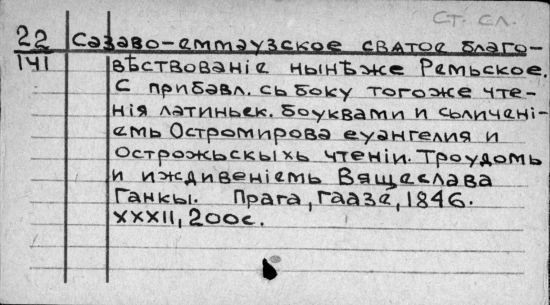 Ст. сл.
22
141
Сазаво-еммаузское святое благо-
вѣствованіе нынѣже Ремьское.
С прибавл. сь боку тогоже чте-
нія латиньск. боуквами и съличені-
емь Остромирова еуангелия и
острожьскыхь чтеніи. Троудомь
и иждивеніемь Вящеслава
Ганкы. Прага, Гаазе, 1846.
XXXII, 200с.